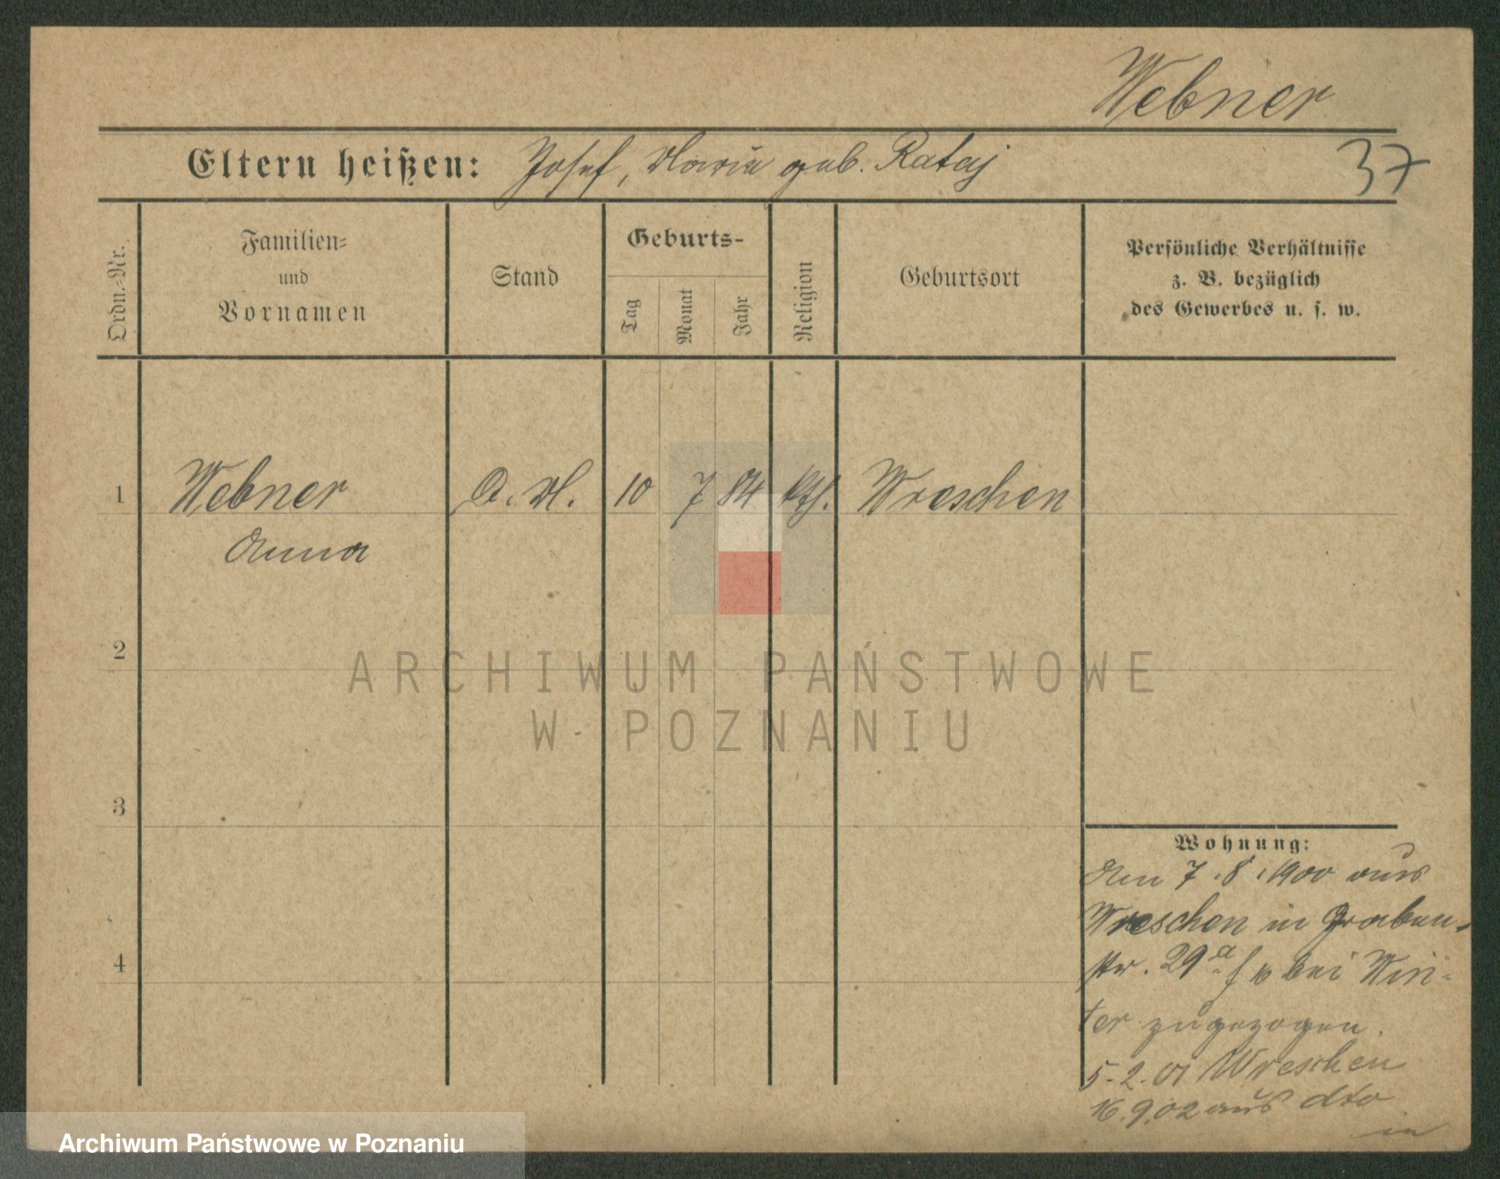 Webner
Eltern heißen: Josef, Maria geb. Rataj
37
Ordn.-Nr.
Familien-
und
Vornamen
Stand
Geburts-
Tag
Monat
Jahr
Religion
Geburtsort
Persönliche Verhältnisse
z. B. bezüglich
des Gewerbes u. s. w.
1 Webner D. M. 10 7 84 kth. Wreschen
Anna
2
3
4
Wohnung:
Am 7.8.1900 aus
Wreschen in Graben-
str. 29 a bei Win-
ter zugezogen.
5.2.01 Wreschen
16.9.02 aus dto
in
ARCHIWUM PAŃSTWOWE
W POZNANIU
Archiwum Państwowe w Poznaniu